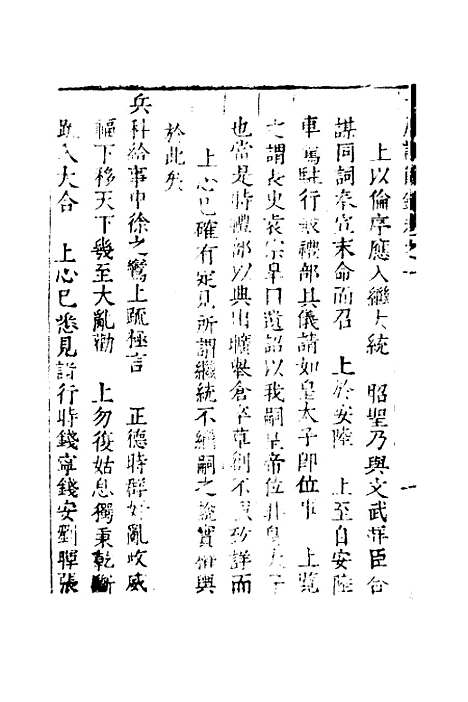 上以倫序應入繼大統　昭聖乃與文武羣臣合
謀同詞奉宣末命而召　上於安陸　上至自安陸
車駕駐行殿禮部具儀請如皇太子即位事　上覽
之謂長史袁宗皐曰遺詔以我嗣皇帝位非皇太子
也當是時禮部以典出曠舉倉卒草創不及致詳而
上心已確有定見所謂繼統不繼嗣之證實權輿
於此矣
兵科給事中徐之鸞上疏極言　正德時羣奸亂政威
福下移天下幾至大亂勸　上勿復姑息獨秉乾斷
疏入大合　上心已悉見諸行時錢寧錢安劉暉張